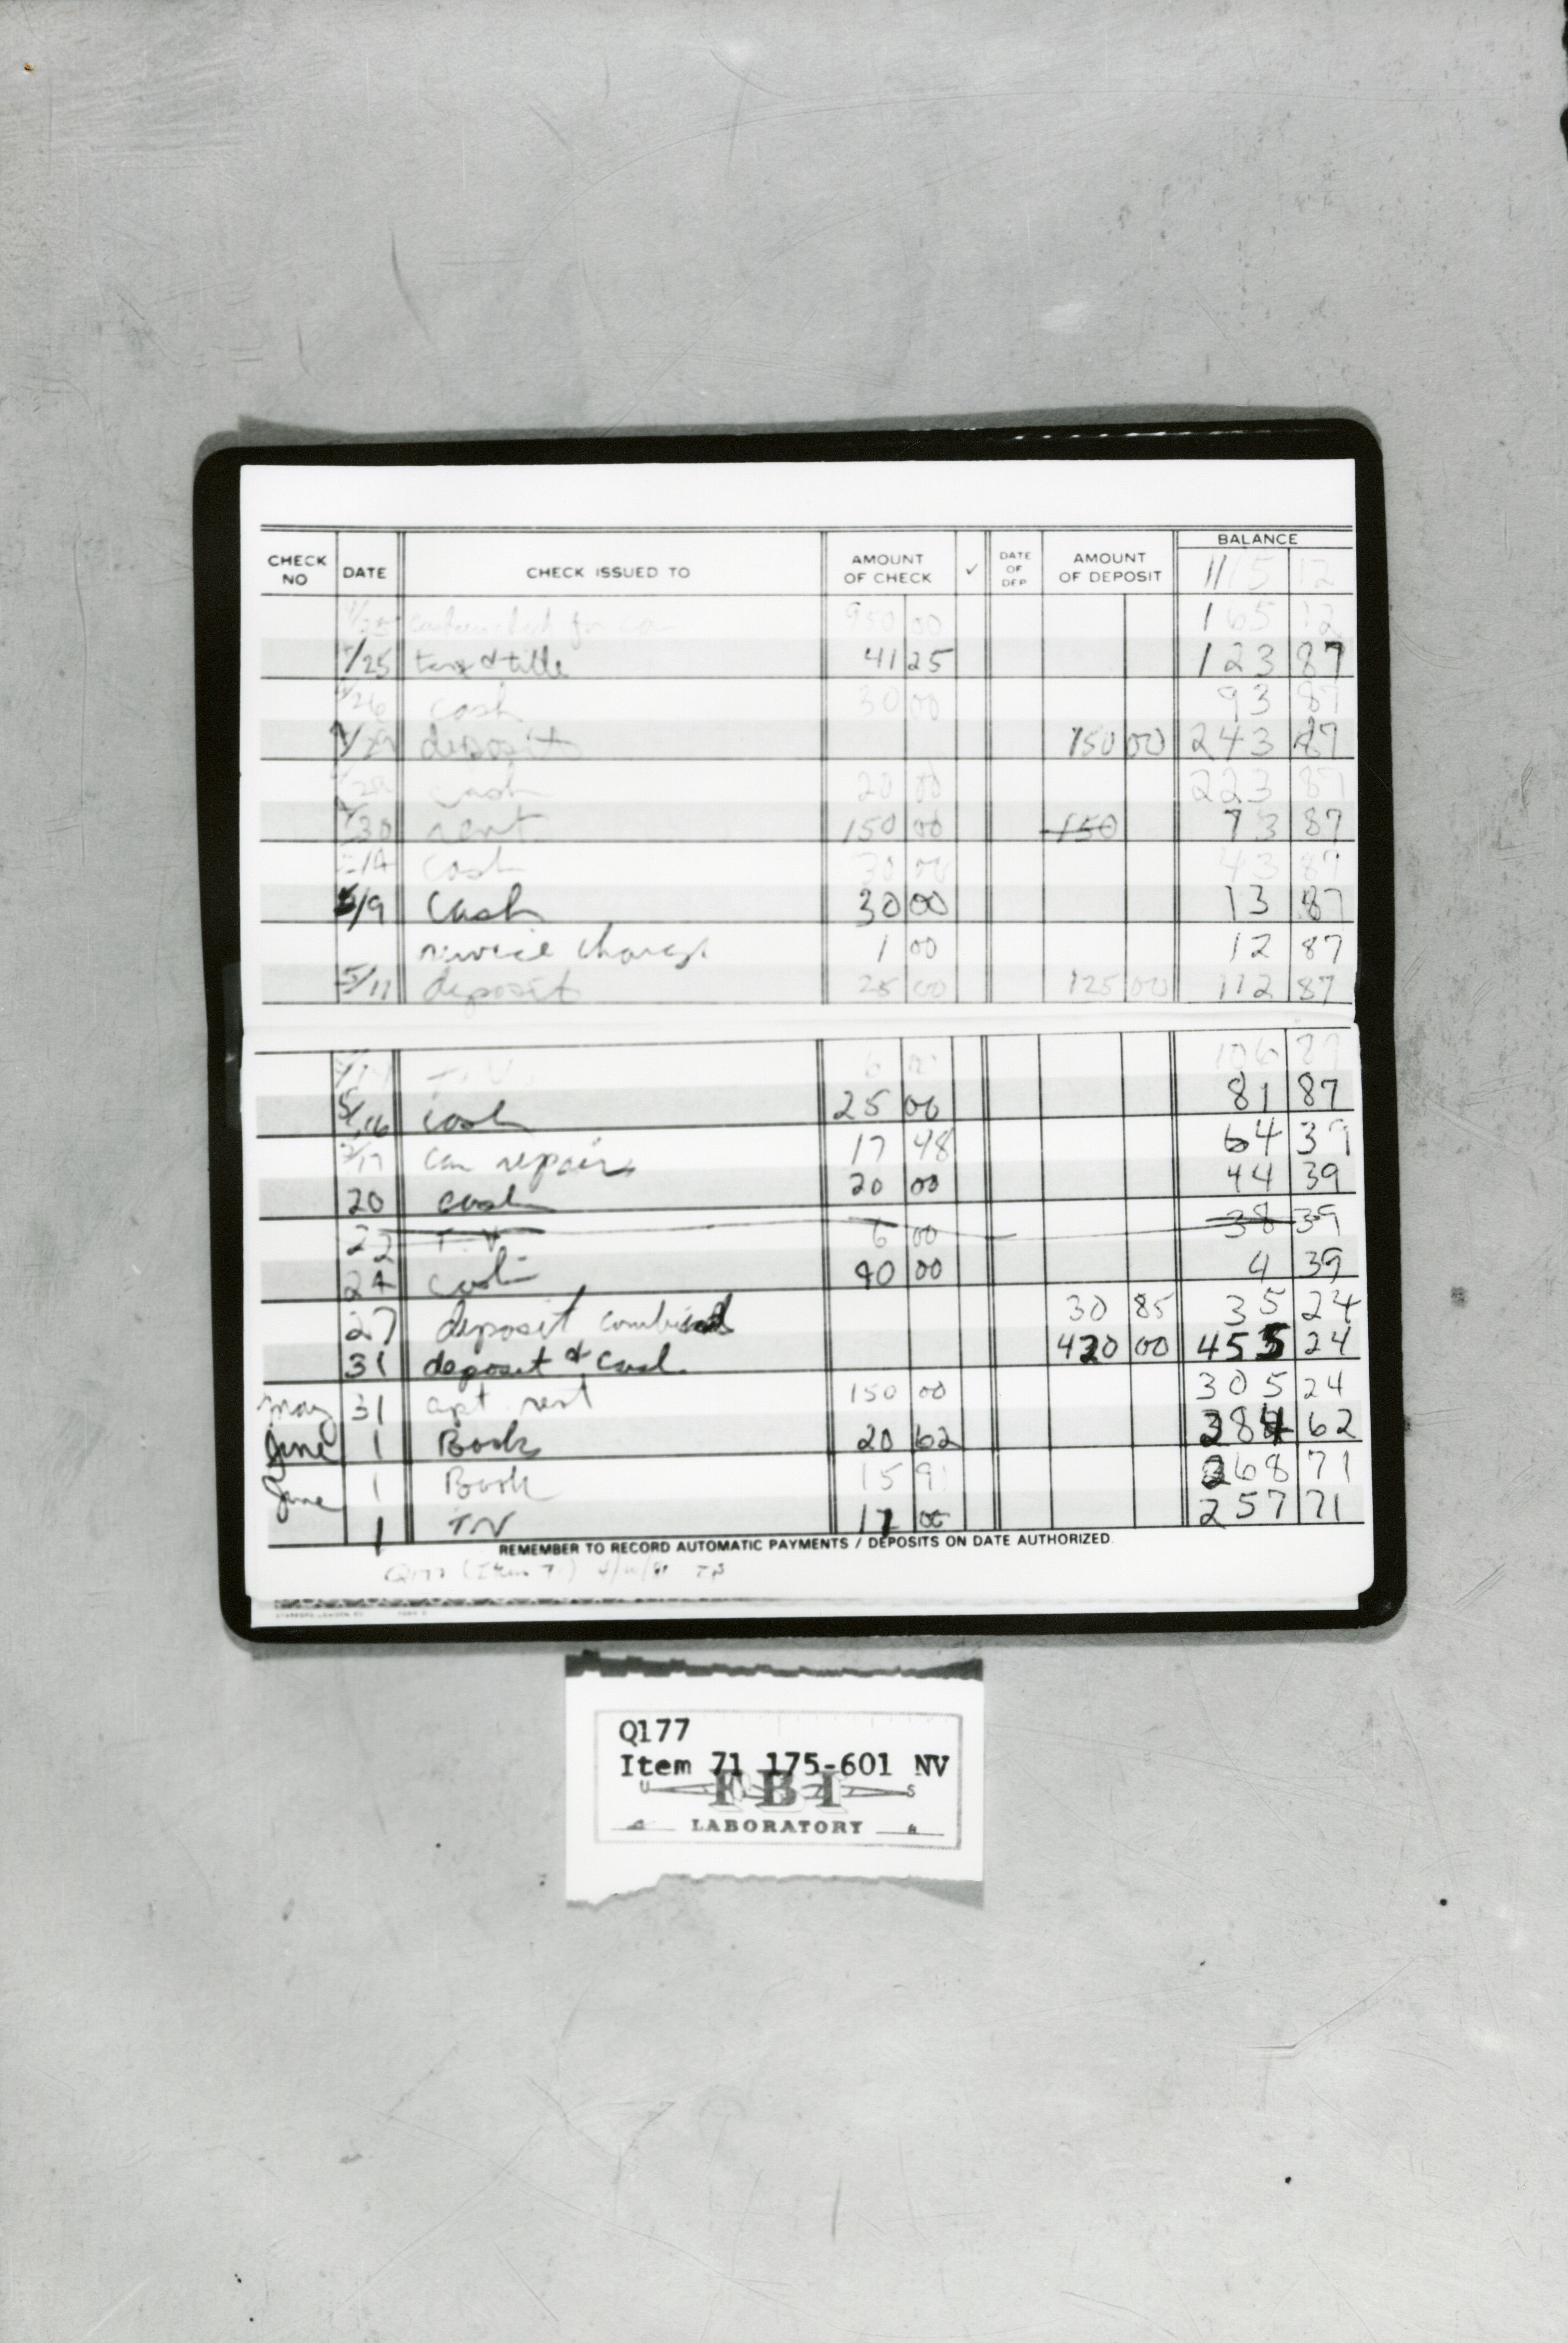 BALANCE
CHECK NO DATE CHECK ISSUED TO AMOUNT OF CHECK ✓ DATE OF DEP AMOUNT OF DEPOSIT 1115 12
4/25 for car 950 00 165 12
4/25 tax & title 41 25 123 87
4/26 cash 30 00 93 87
deposit 150 00 243 87
cash 20 00 223 87
4/30 rent 150 00 150 73 87
cash 30 00 43 87
5/9 cash 30 00 13 87
service charge 1 00 12 87
5/11 deposit 25 00 125 00 112 87
T.V. 6 00 106 87
5/16 cash 25 00 81 87
5/17 car repair 17 48 64 39
20 cash 20 00 44 39
22 T.V 6 00 38 39
24 cash 40 00 4 39
27 deposit combined 30 85 35 24
31 deposit & cash 420 00 455 24
May 31 apt. rent 150 00 305 24
June 1 Books 20 62 284 62
June 1 Book 15 91 268 71
1 TV 11 00 257 71
REMEMBER TO RECORD AUTOMATIC PAYMENTS / DEPOSITS ON DATE AUTHORIZED.
Q177 (Item 71)
Q177
Item 71 175-601 NV
U FBI S
LABORATORY